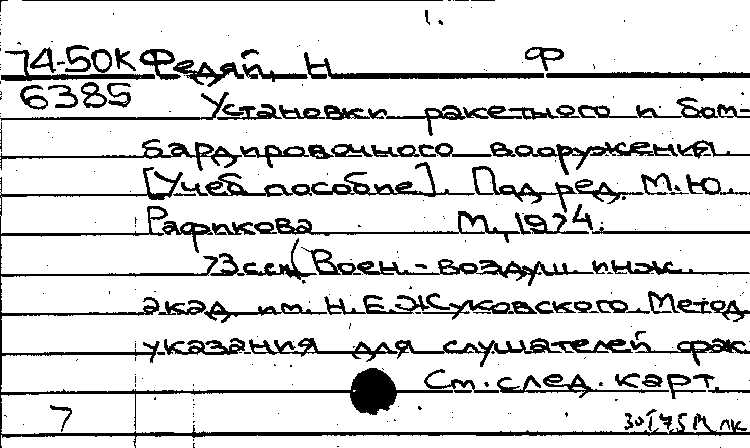 1.
74-50К Федяй, Н Ф
6385 Установки ракетного и бом-
бардировочного вооружения.
[Учеб пособие]. Под ред. М.Ю.
Рафикова. М., 1974.
73с.ск (Воен.-воздуш. инж.
акад им. Н.Е.Жуковского. Метод
указания для слушателей фак
См. след. карт.
7